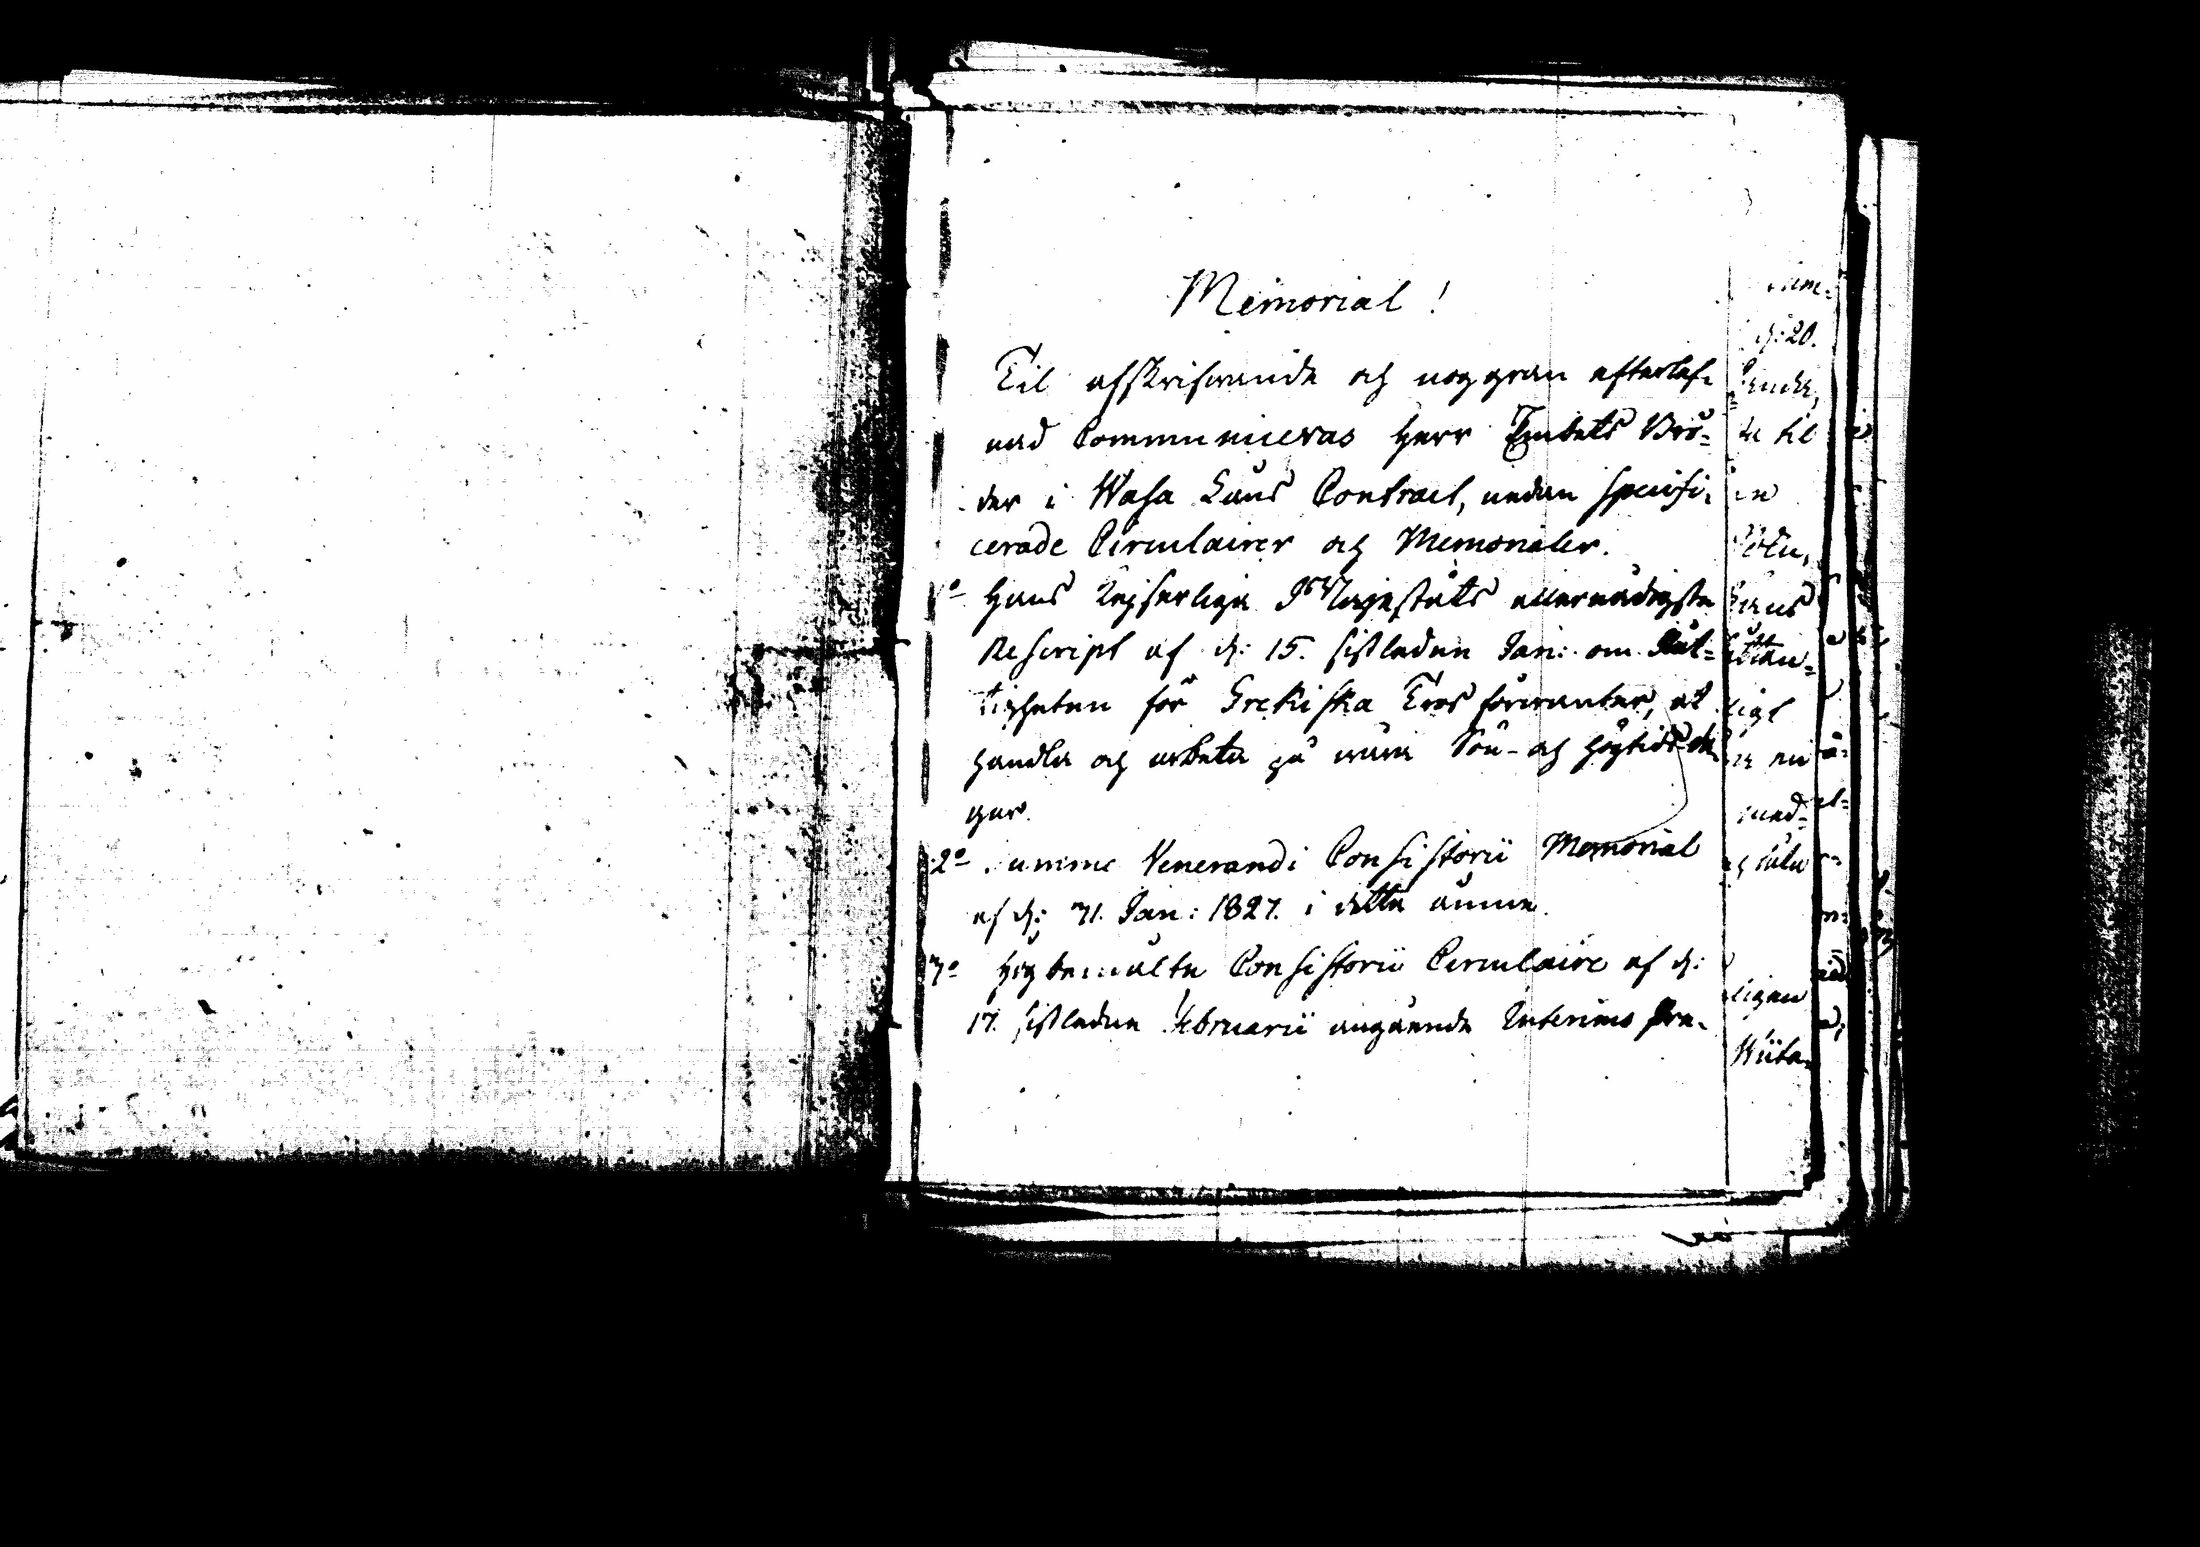 Memorial!
Til afskrifwande och noggran efterlef-
nad Communiceras Herr Embets Brö-
der i Wasa Läns Contract, nedan specifi-
cerade Circulairer och Memorialer.
1o Hans Kejserliga Majestäts allernådigste
Rescript af d: 15. sistleden Jan: om Skål-
tigheten för Grekiska Trosförwanter, at
handla och arbeta på wåra Sön- och Högtids da-
gar.
2o Venerandi Consistorii Memorial
af d: 31. Jan: 1827. i detta ämne.
3o Högbemälte Consistorii Circulaire af d:
17. sistledne Februarii angående Interims Pre-
d: 20.
til
Hans
ligt
med-
ligen